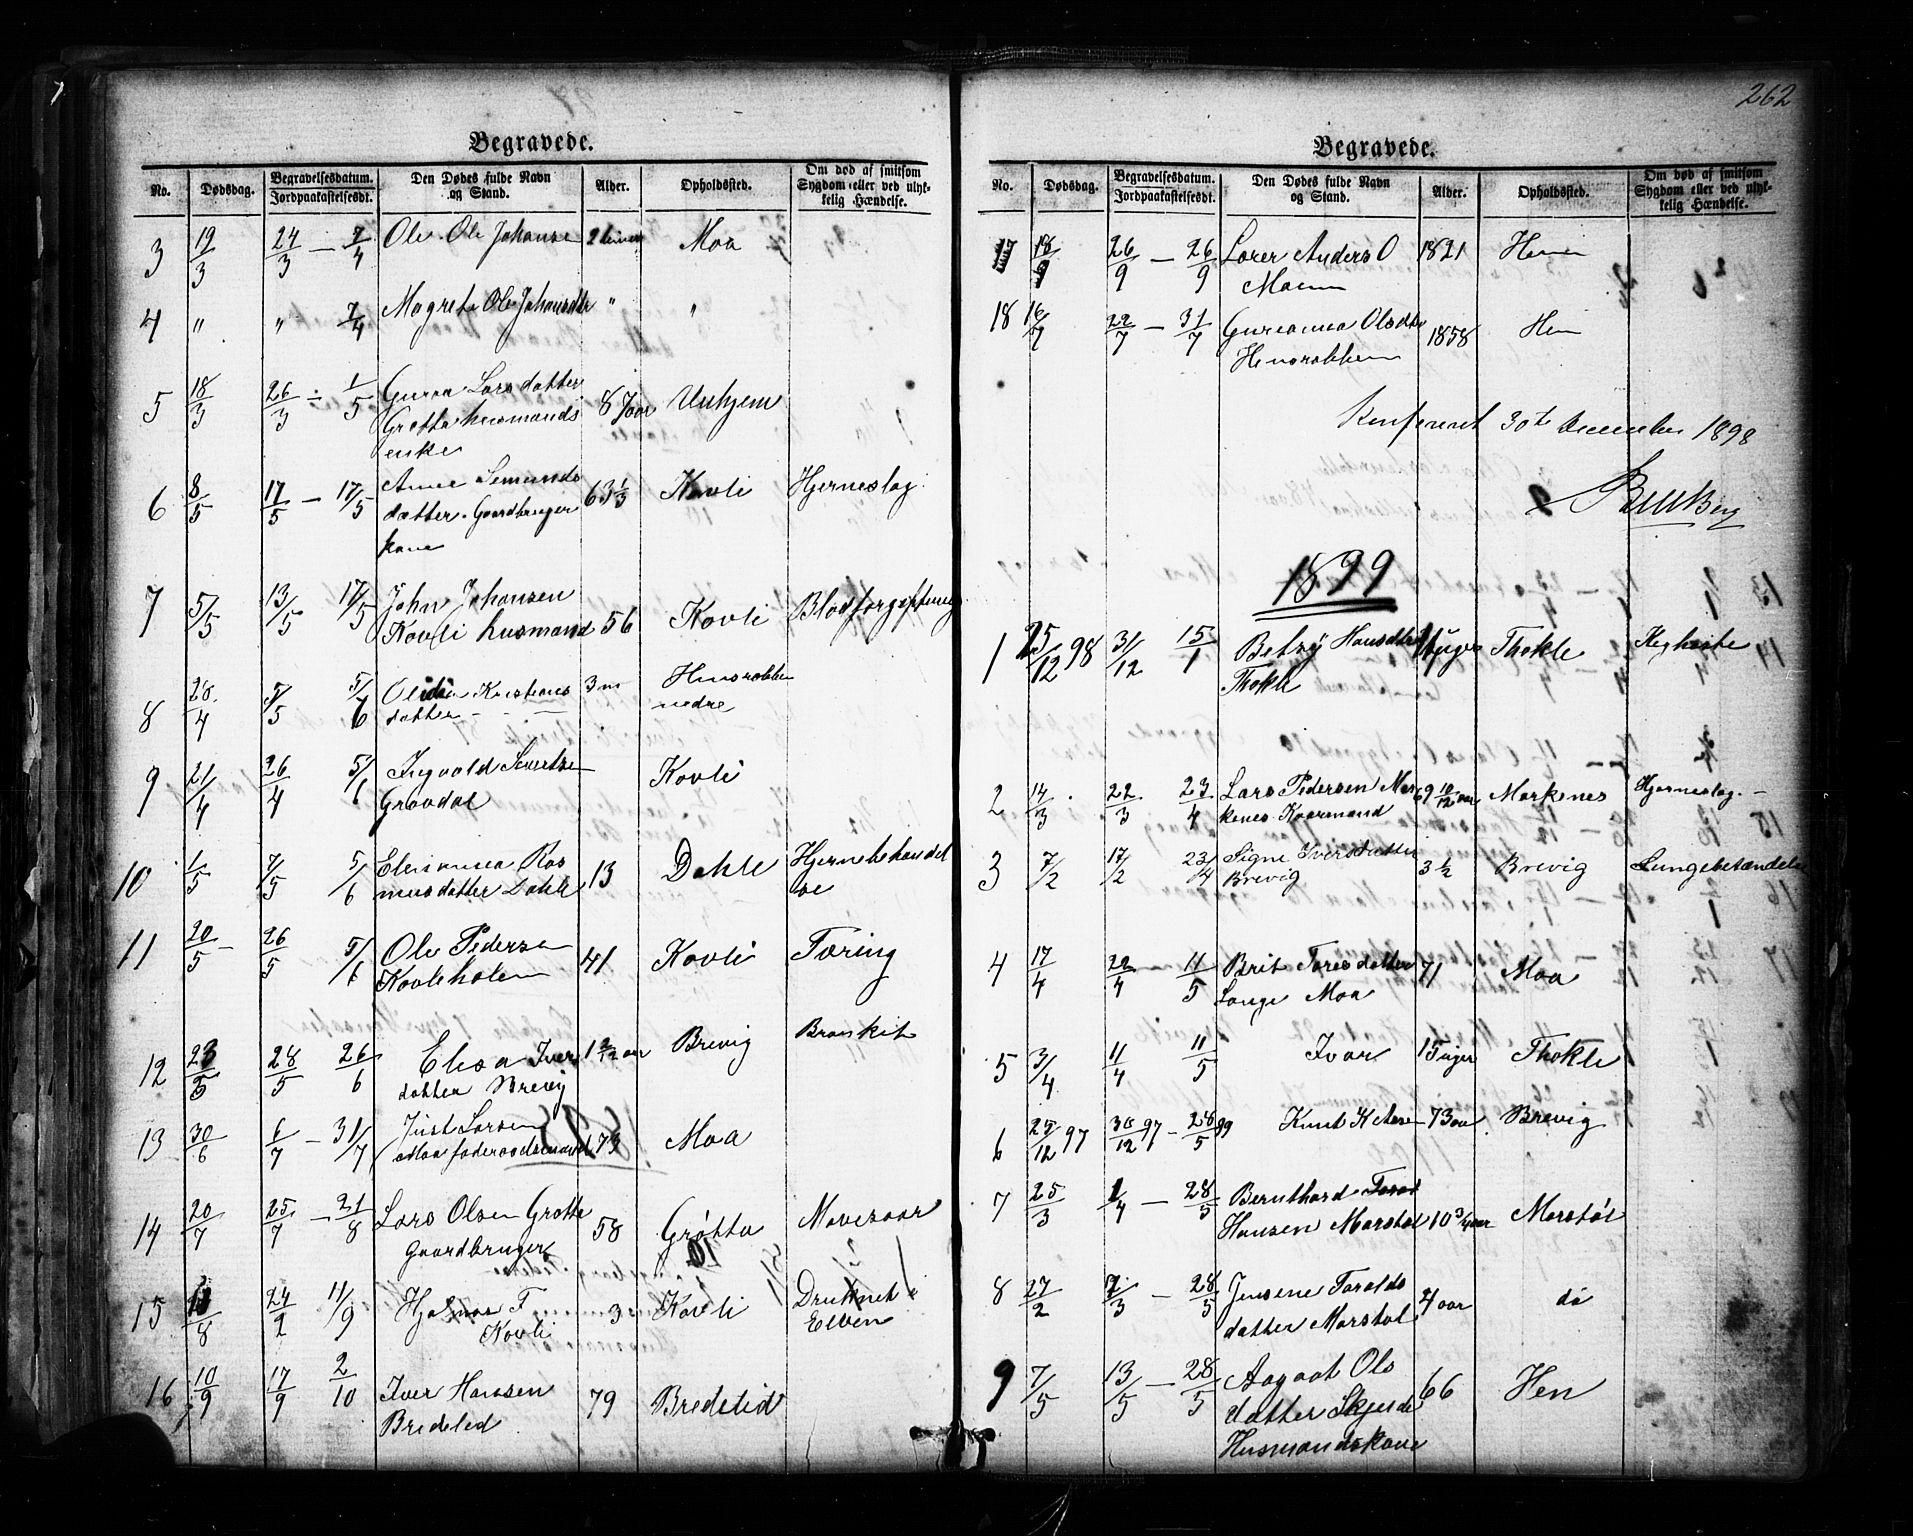 Begravede.
No. Dødsdag. Begravelsesdatum. Jordpaakastelsesdt. Den Dødes fulde Navn og Stand. Alder. Opholdssted. Om død af smitsom Sygdom eller ved ulykkelig Hændelse.
3 19/3 24/3 — 7/4 Ole Ole Johansen 2 timer Moa
4 " " 7/4 Magrete Ole Johansdtr " "
5 18/3 26/3 ÷ 1/5 Guroa Larsdatter 8 Unhjem
Grøtta husmands
enke
6 8/5 17/5 — 17/5 Anne Semunds 63 1/3 Kovli Hjerneslag
datter. Gaardbruger
kone
7 5/5 13/5 17/5 John Johansen
Kovli husmand 56 Kovli Blodforgiftning
8 28/4 5/5 5/6 Olida Kristians 3 m Hensrabben
datter nedre
9 21/4 26/4 5/6 Ingvald Kovli
Grøvdal
10 1/5 7/5 5/6 Elenanna Ras 13 Dahle Hjernebehændel
musdatter Dahle se
11 20/5 — 26/5 5/6 Ole Pedersen 41 Kovli Tæring
Kovliholen
12 23/5 28/5 26/6 Elesa Iver 1 2/12 aar Brevig Bronkit
datter Brevig
13 30/6 6/7 — 31/7 Just Larsen
Moa føderaadsmand 73 Moa
14 20/7 25/7 — 21/8 Lars Olsen Grøtte 58 Grøtta Mavesaar
Gaardbruger
15 24/ 11/9 Hjalmar T 3 Kovli Druknet i
Kovli Elven
16 10/9 17/9 2/10 Iver Hansen 79 Bredelid
Bredeled
262
Begravede.
No. Dødsdag. Begravelsesdatum. Jordpaakastelsesdt. Den Dødes fulde Navn og Stand. Alder. Opholdssted. Om død af smitsom Sygdom eller ved ulykkelig Hændelse.
17 18/9 26/9 — 26/9 Anders O 1821 Henn
18 16/7 22/7 — 31/7 Gurianna Olsdtr 1858 Hen
Hensrabben
Konfereret 30te december 1898
1899
1 25/12 98 31/12 15/1 Betzy Hansdtr uger Thokle Kighoste
Thokle
2 14/3 22/3 23/4 Lars Pedersen Mar 69 10/12 aar Markenes Hjerneslag
kenes Kaarmand
3 7/2 17/2 23/4 Signe Iversdatter 3 1/2 Brevig Lungebetændelse
Brevig
4 17/4 22/4 11/5 Brit Toresdatter 71 Moa
Lange Moa
5 3/4 11/4 11/5 Ivar 15 uger Thokle
6 25/12 97 30/12 97 — 28/5 99 Knut K 73 aar Brevig
7 25/3 1/4 — 28/5 Bernthard Torald
Hansen Marstøl 10 3/4 aar Marstøl
8 27/2 7/3 — 28/5 Jensene Toralds 4 aar do
datter Marstøl
9 7/5 13/5 — 28/5 Aagaat Ols 66 Hen
datter
Husmandskone